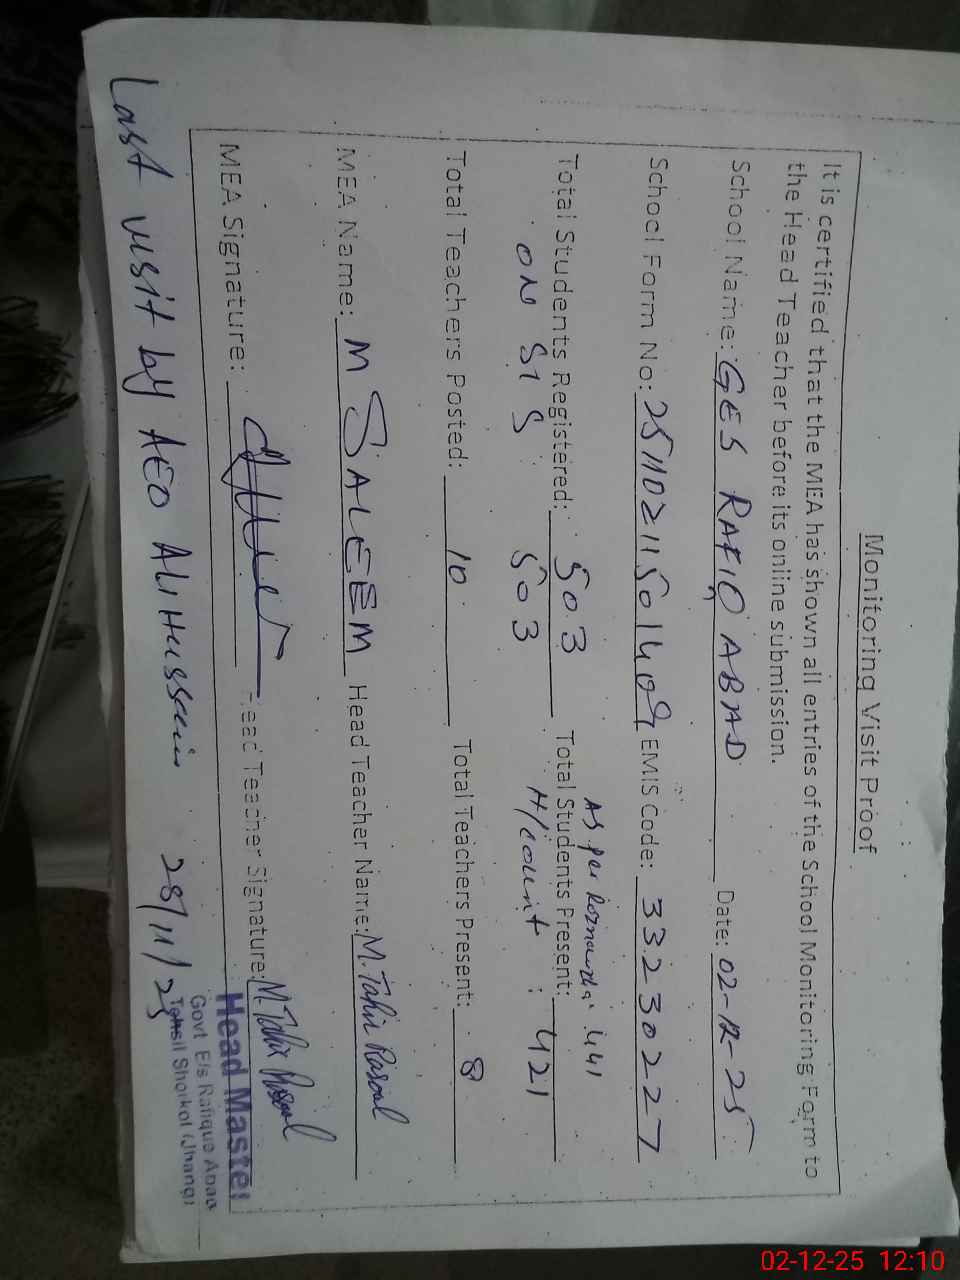 Monitoring Visit Proof
It is certified that the MEA has shown all entries of the School Monitoring Form to
the Head Teacher before its online submission.
School Name: GES RAFIQ ABAD Date: 02-12-25
School Form No: 2511021150140 EMIS Code: 33230227
As per Roznamcha: 441
Total Students Registered: 503 Total Students Present:
ON SIS 503 H/count: 421
Total Teachers Posted: 10 Total Teachers Present: 8
MEA Name: M SALEEM Head Teacher Name: M. Tahir Rasool
MEA Signature: Head Teacher Signature: M. Tahir Rasool
Head Master
Govt E/s Rafique Abad
Tehsil Shorkot (Jhang)
Last visit by AEO Ali Hussain 28/11/25
02-12-25 12:10